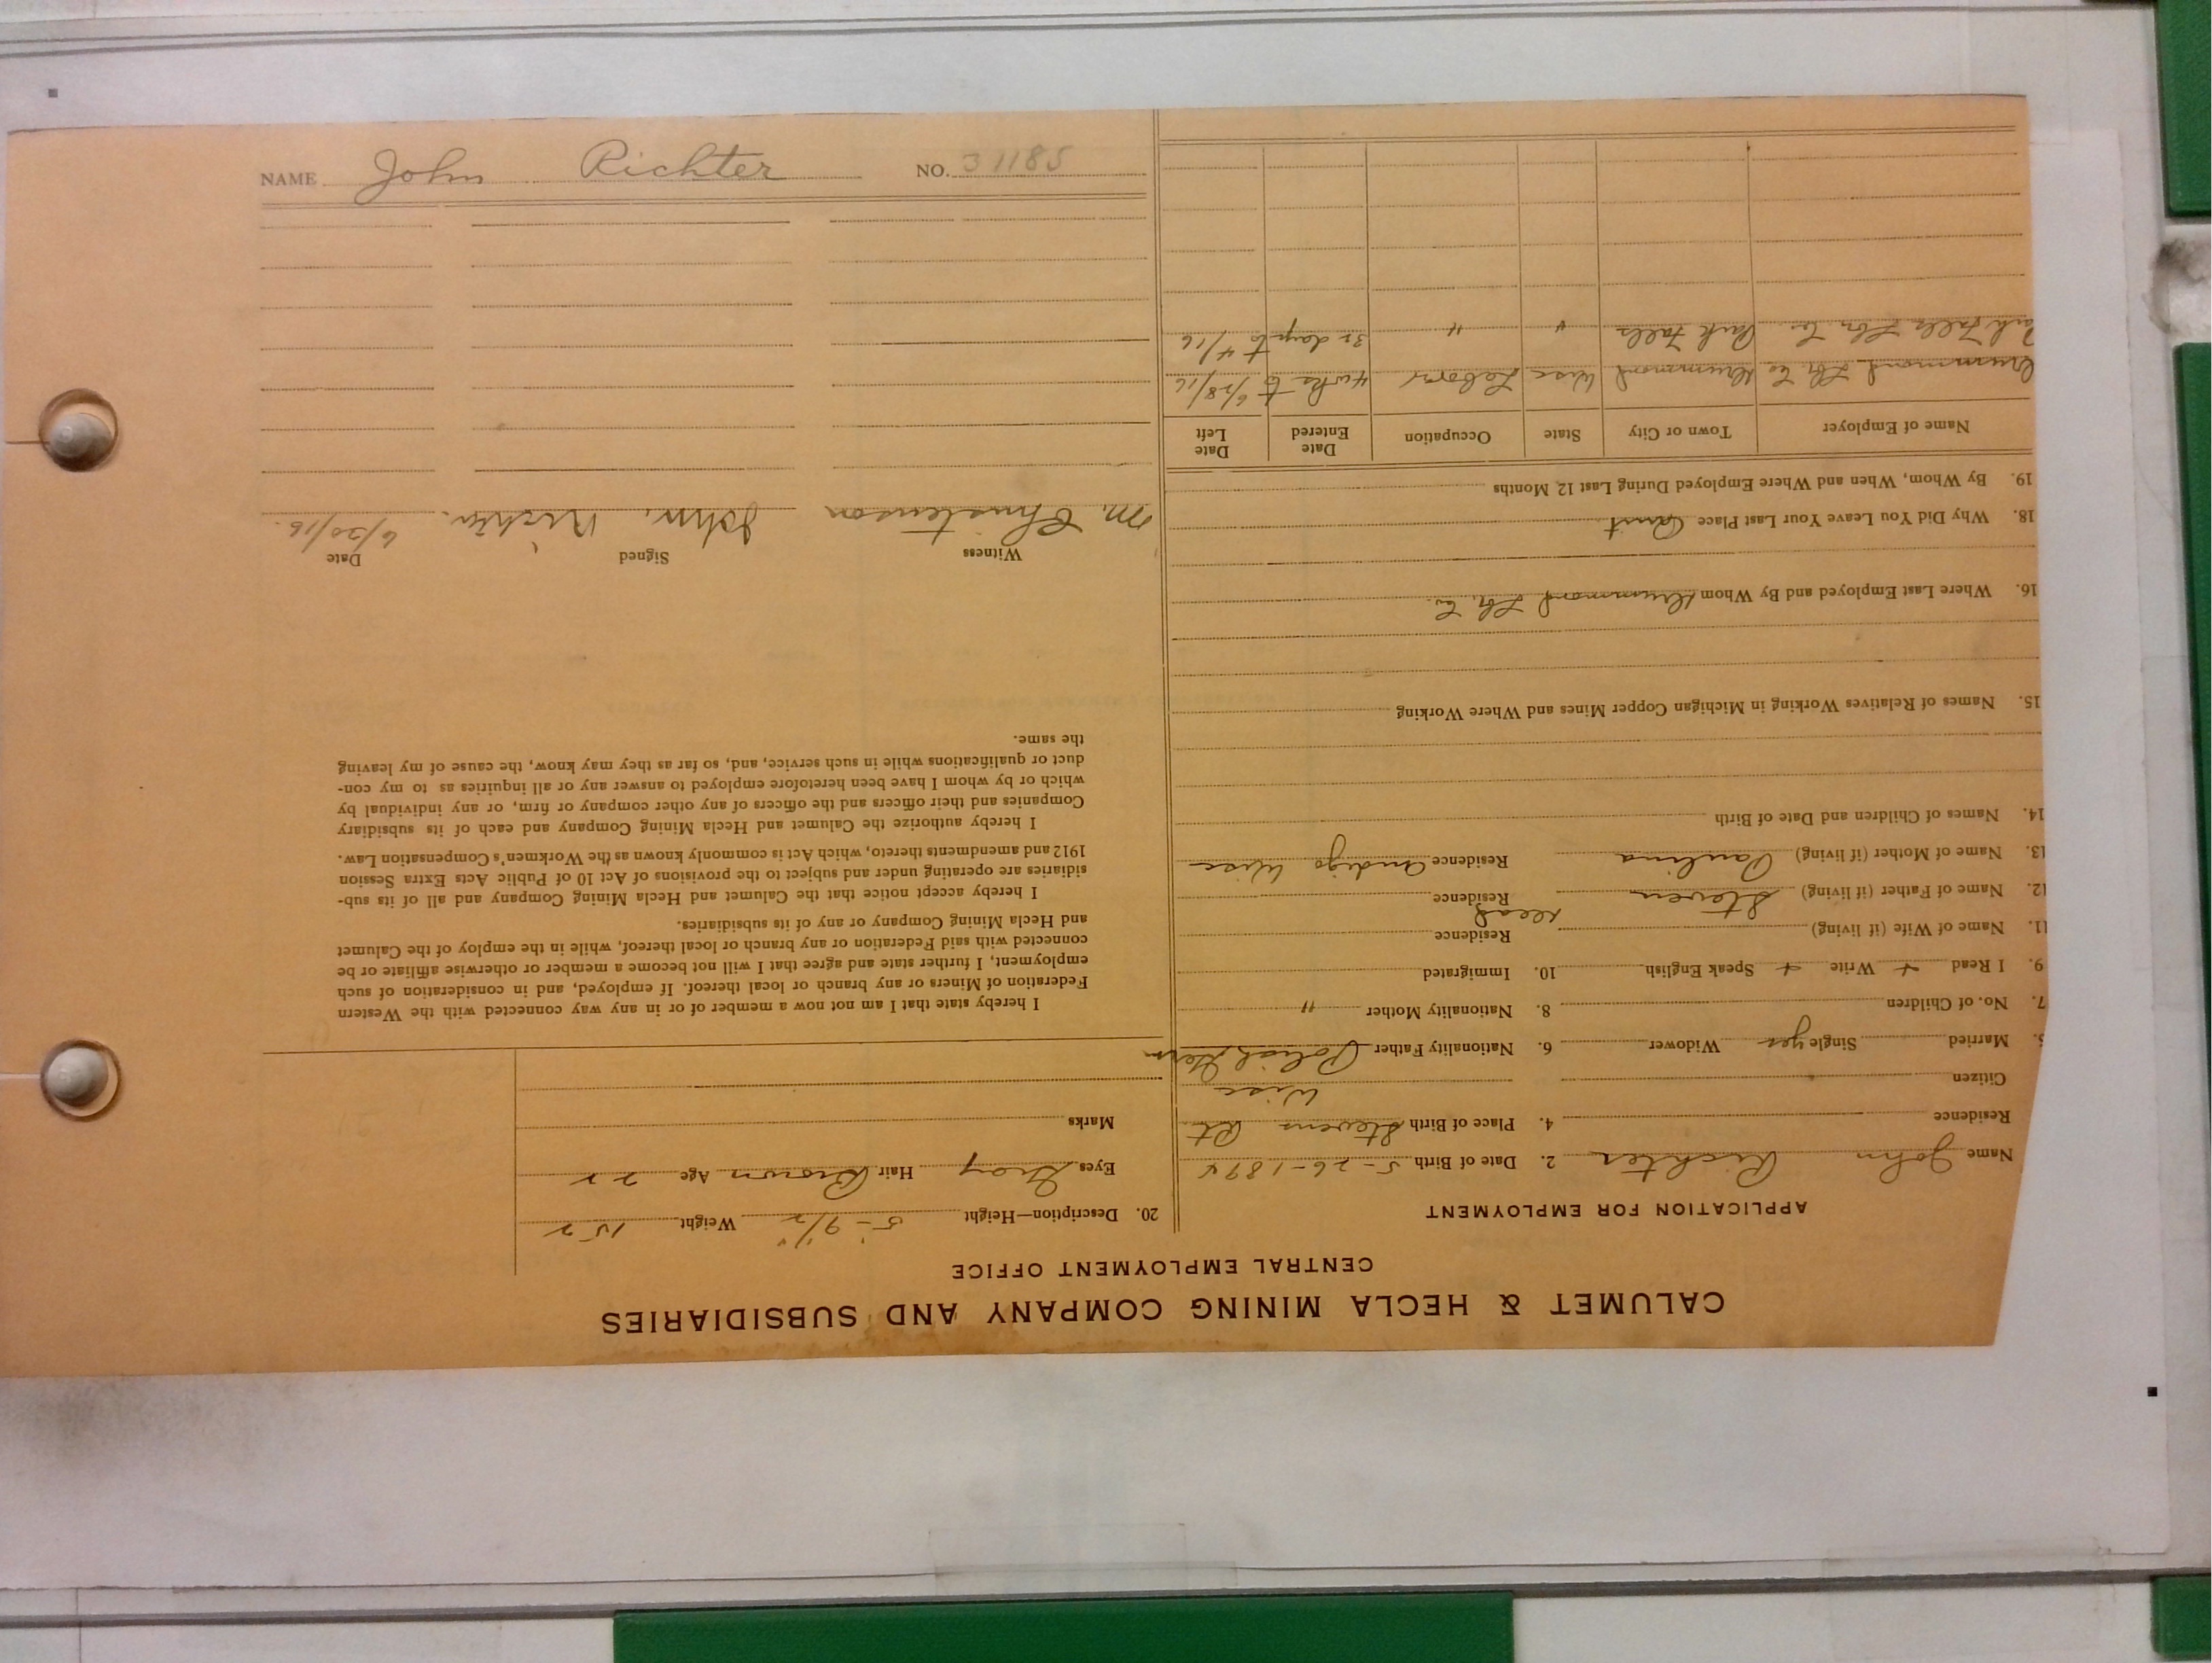 NAME John Richter NO. 31185
CALUMET & HECLA MINING COMPANY AND SUBSIDIARIES
CENTRAL EMPLOYMENT OFFICE
APPLICATION FOR EMPLOYMENT
Name John Richter 2. Date of Birth 5-26-1894
Residence 4. Place of Birth Stevens Pt
Citizen Wisc
5. Married Single yes Widower 6. Nationality Father Polish Germ
7. No. of Children 8. Nationality Mother "
9. I Read + Write + Speak English 10. Immigrated
11. Name of Wife (if living) Residence
12. Name of Father (if living) Steven dead Residence
13. Name of Mother (if living) Paulina Residence Antigo Wisc
14. Names of Children and Date of Birth
15. Names of Relatives Working in Michigan Copper Mines and Where Working
16. Where Last Employed and By Whom Drummond Lbr. Co.
18. Why Did You Leave Your Last Place Quit
19. By Whom, When and Where Employed During Last 12 Months
Name of Employer Town or City State Occupation Date Entered Date Left
Drummond Lbr. Co Drummond Wisc Labor 4 wks to 6/28/16
Park Falls Lbr. Co. Park Falls " " 32 days to 4/16
20. Description—Height 5'-9 1/2" Weight 152
Eyes Gray Hair Brown Age 22
Marks
I hereby state that I am not now a member of or in any way connected with the Western
Federation of Miners or any branch or local thereof. If employed, and in consideration of such
employment, I further state and agree that I will not become a member or otherwise affiliate or be
connected with said Federation or any branch or local thereof, while in the employ of the Calumet
and Hecla Mining Company or any of its subsidiaries.
I hereby accept notice that the Calumet and Hecla Mining Company and all of its sub-
sidiaries are operating under and subject to the provisions of Act 10 of Public Acts Extra Session
1912 and amendments thereto, which Act is commonly known as the Workmen's Compensation Law.
I hereby authorize the Calumet and Hecla Mining Company and each of its subsidiary
Companies and their officers and the officers of any other company or firm, or any individual by
which or by whom I have been heretofore employed to answer any or all inquiries as to my con-
duct or qualifications while in such service, and, so far as they may know, the cause of my leaving
the same.
Witness Signed Date
M. Christenson John Richter 6/30/16.